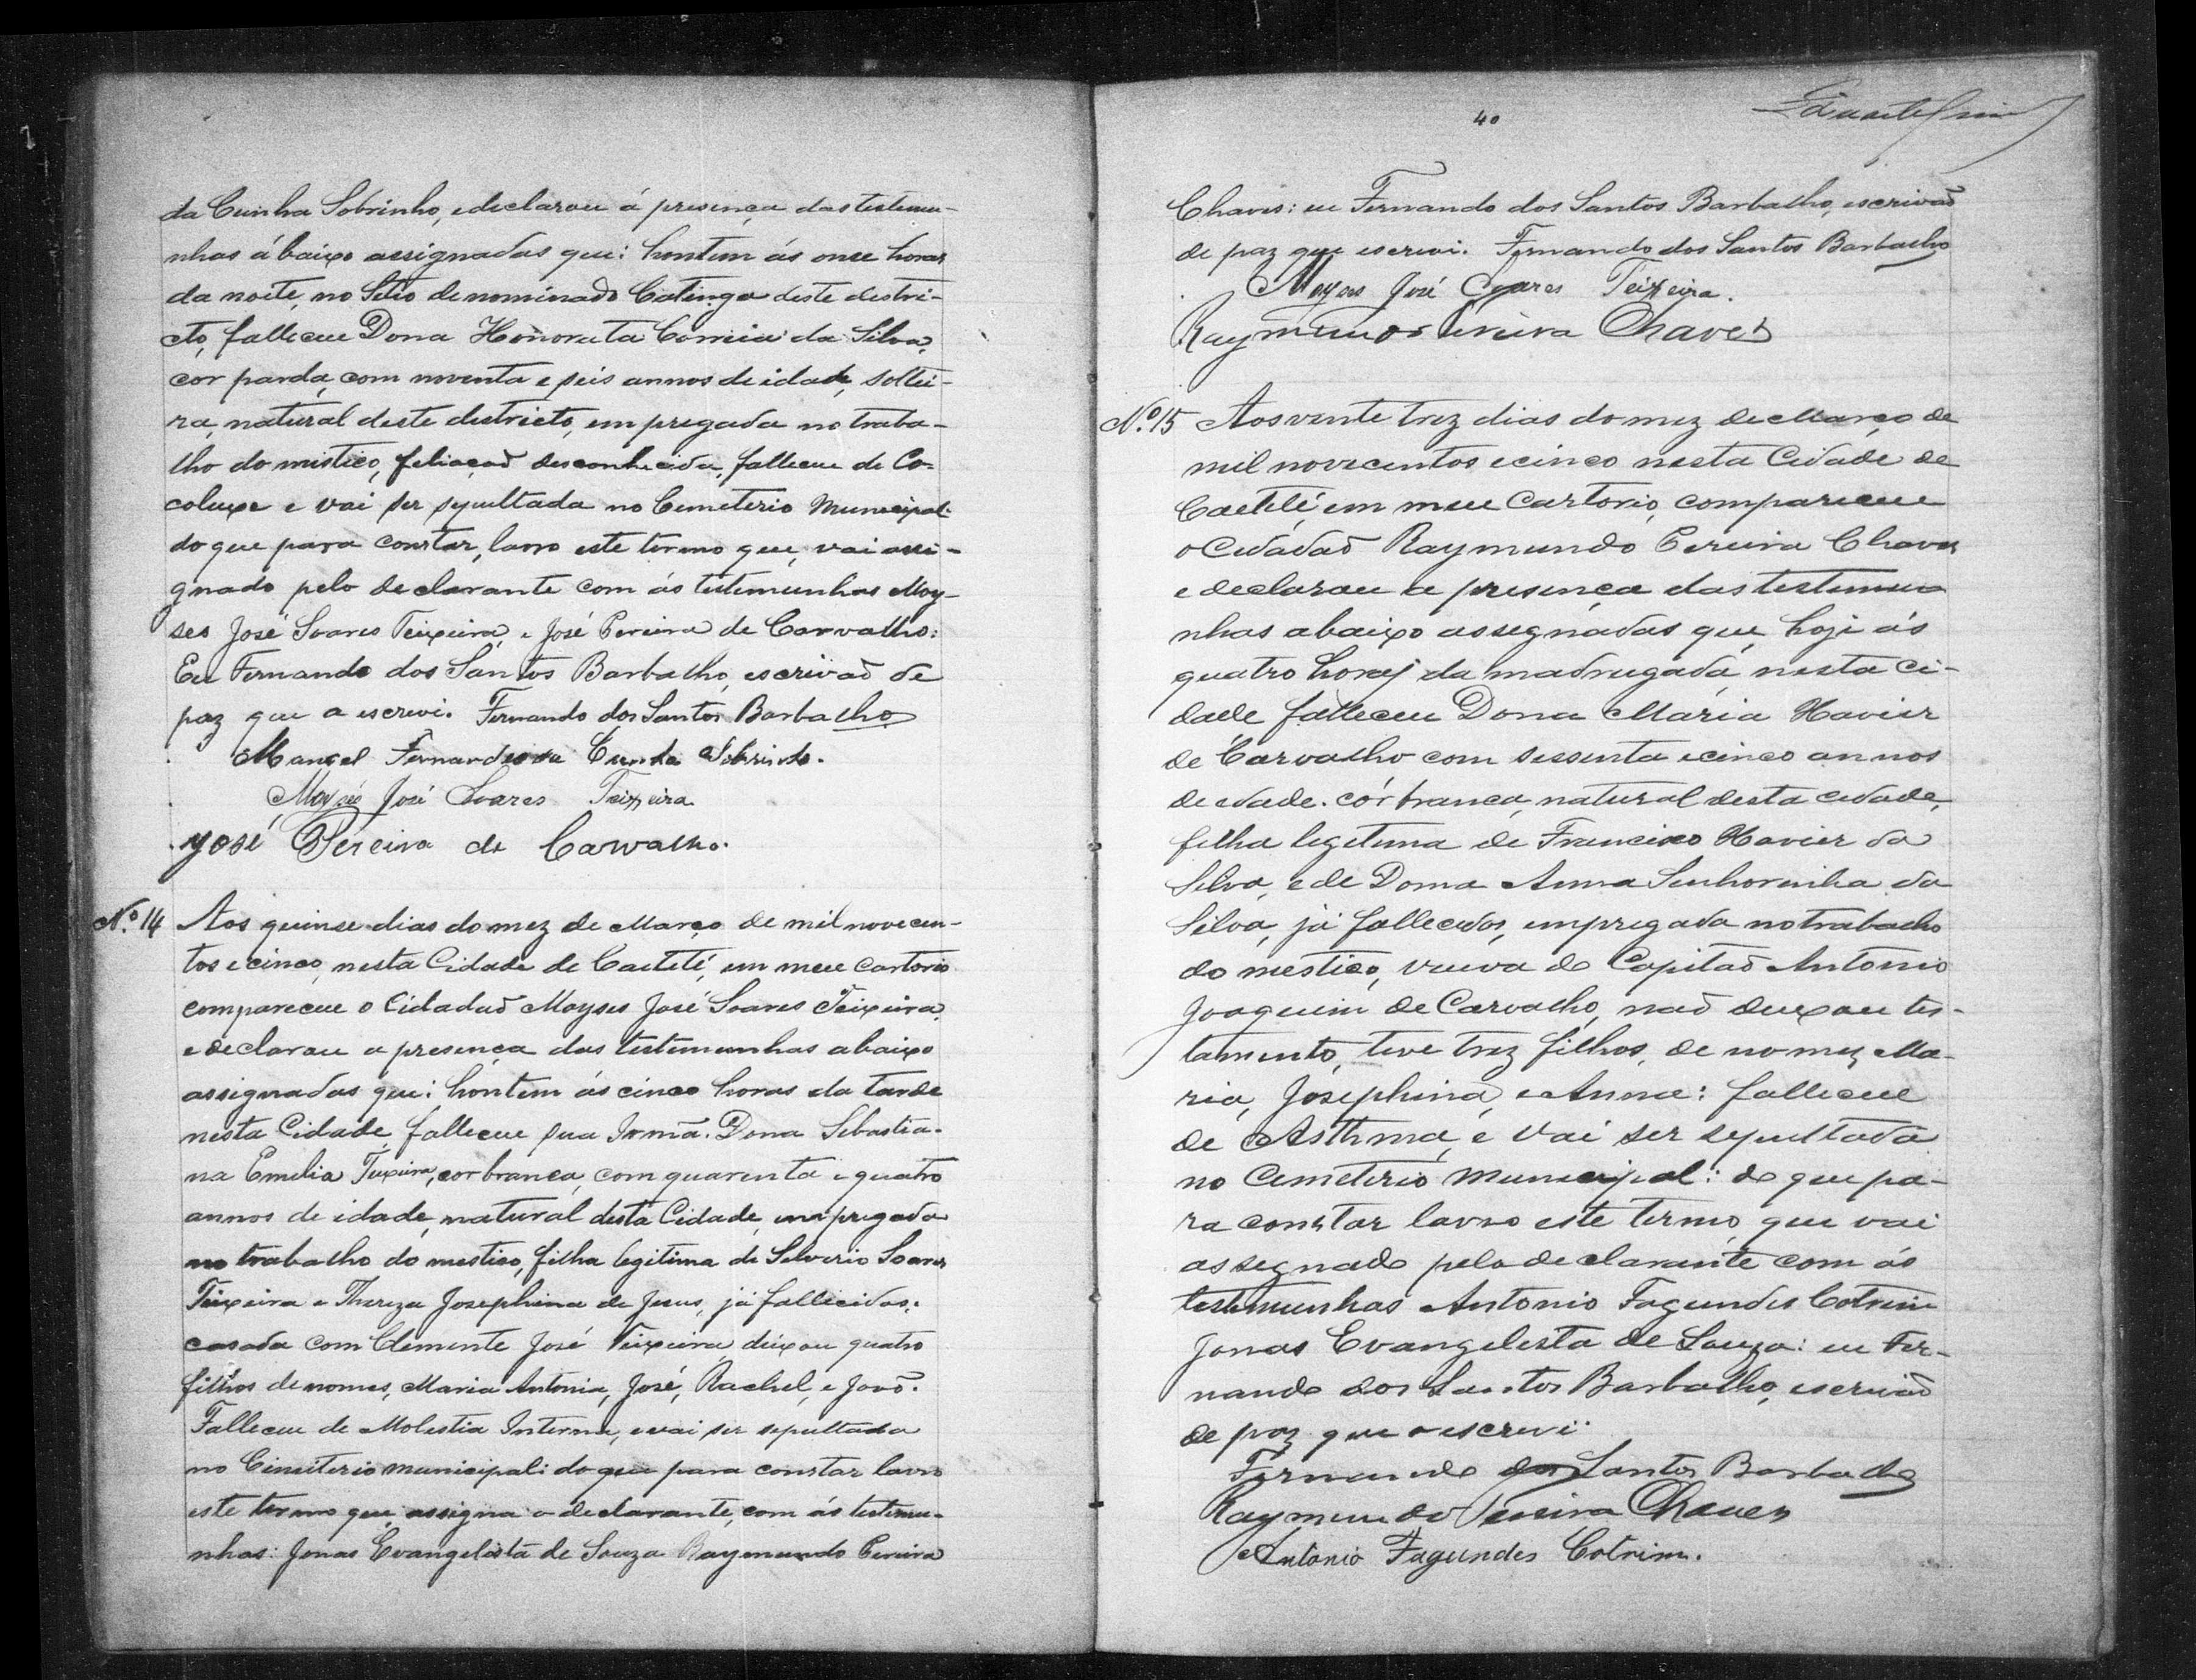 da Cunha Sobrinho, e declarou á presença das testemu-
nhas ábaixo assignadas que: hontem ás onse horas
da noite, no Sitio denominado Catinga deste destri-
cto, falleceu Dona Honorata Correia da Silva,
cor parda, com noventa e seis annos de idade, soltei-
ra, natural deste destricto, empregada no traba-
lho do mistico, filiação desconhecida, falleceu de Co-
coluxe e vai ser sepultada no Cemeterio Municipal.
do que para constar, lavro este termo que, vai assi-
gnado pelo declarante com ás testemunhas Moy-
ses José Soares Teixeira, e José Pereira de Carvalho:
Eu Fernando dos Santos Barbalho, escrivaõ de
paz que a escrevi. Fernando dos Santos Barbalho
Manoel Fernandes da Cunha Sobrinho.
Moysés José Soares Teixeira
José Pereira de Carvalho.
Nº 14 Aos quinse dias do mez de Março de mil novecen-
tos e cinco, nesta Cidade de Caeteté, em meu Cartorio
compareceu o Cidadaõ Moyses José Soares Teixeira,
e declarau a presença das testemunhas abaixo
assignadas que: hontem ás cinco horas da tarde
nesta Cidade falleceu sua Irmã. Dona Sebastia-
na Emilia Teixeira, cor branca, com quarenta e quatro
annos de idade, natural desta Cidade, empregada
no trabalho do mestico, filha legitima de Silverio Soares
Teixeira e Thereza Josephina de Jesus, já fallicidos.
casada com Clemente José Teixeira, deixou quatro
filhos de nomes, Maria Antonia, José, Rachel, e Joaõ.
Falleceu de Molestia Interna, e vai ser sepultada
no Cimiterio municipal: do que para constar lavro
este termo que, assigna o declarante, com ás testemu-
nhas: Jonas Evangelista de Souza Raymundo Pereira
40
Chaves: eu Fernando dos Santos Barbalho, escrivaõ
de paz que escrevi. Fernando dos Santos Barbalho
Moyses José Soares Teixeira.
Raymundo Pereira Chaves
Nº 15 Aos vente trez dias do mez de Março de
mil novecentos e cinco nesta Cidade de
Caeteté, em meu Cartorio, compareceu
o Cidadaõ Raymundo Pereira Chaves
e declarau a presença das testemu
nhas abaixo assegnadas que, hoje ás
quatro horas da madrugada, nesta ci-
dade falleceu Dona Maria Xavier
de Carvalho com sessenta e cinco annos
de edade. côr branca, natural desta cidade,
filha legetima de Francisco Xavier da
Silva, e de Dona Anna Senhorinha da
Silva, já fallecidos, empregada no trabalho
do mestico, viuva do Capitaõ Antonio
Joaquim de Carvalho, naõ deixou tes-
tamento, teve trez filhos, de nomez Ma-
ria, Josephina, e Anna: falleceu
de Asthma, e vai ser sepultada
no Cemeterio Municipal: do que pa-
ra constar lavro este termo que vai
assegnado pelo declarante com ás
testemunhas Antonio Fagundes Cotrim
Jonas Evangelesta de Souza: eu Fer-
nando dos Santos Barbalho, escrivaõ
de paz que o escrevi
Fernando dos Santos Barbalho
Raymundo Pereira Chaves
Antonio Fagundes Cotrim.